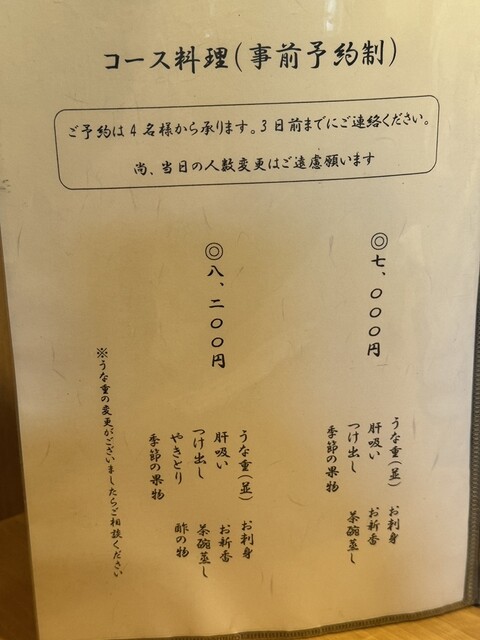 コース料理(事前予約制)
ご予約は4名様から承ります。3日前までにご連絡ください。
尚、当日の人数変更はご遠慮願います
◎七、〇〇〇円
うな重(並) お刺身
肝吸い お新香
つけ出し 茶碗蒸し
季節の果物
◎八、二〇〇円
うな重(並) お刺身
肝吸い お新香
つけ出し 茶碗蒸し
やきとり 酢の物
季節の果物
※うな重の変更がございましたらご相談ください